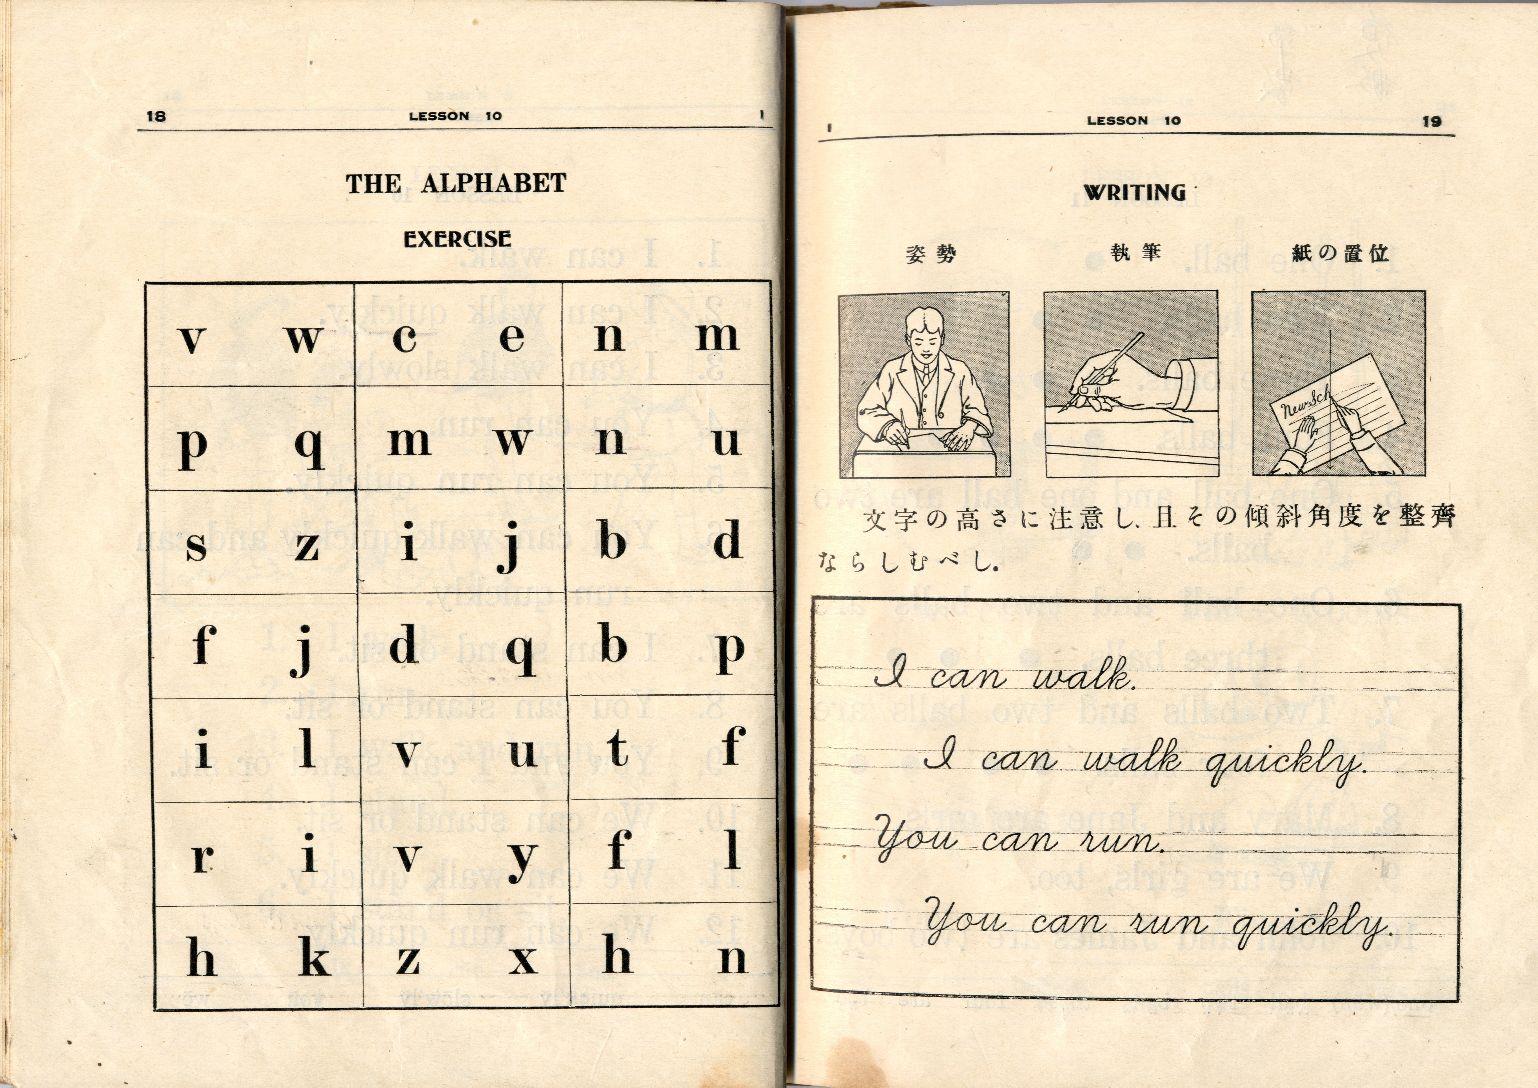 18 LESSON 10 1
THE ALPHABET
EXERCISE
v w c e n m
p q m w n u
s z i j b d
f j d q b p
i l v u t f
r i v y f l
h k z x h n
1 LESSON 10 19
WRITING
姿勢 執筆 紙の置位
New Sch
文字の高さに注意し、且その傾斜角度を整齊
ならしむべし.
I can walk.
I can walk quickly.
You can run.
You can run quickly.